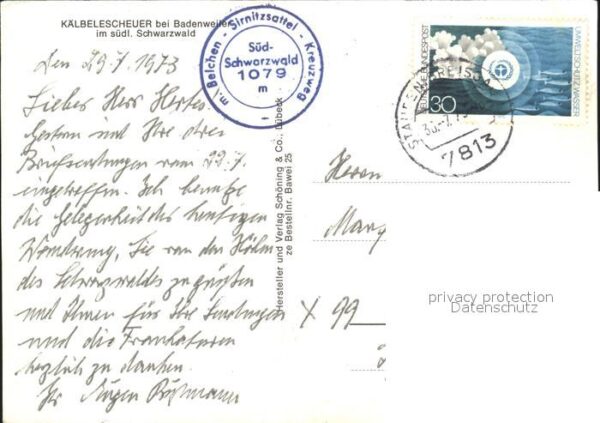 KÄLBELESCHEUER bei Badenweiler
im südl. Schwarzwald
m. Belchen - Sirnitzsattel - Kreuzweg
Süd-
Schwarzwald
1079
m
Den 29.7.1973
Lieber Herr Hertes
Gestern sind Ihre drei
Briefsendungen vom 22.7.
eingetroffen. Ich benutze
die Gelegenheit des heutigen
Wandrung, Sie von den Höhen
des Schwarzwaldes zu grüßen
und Ihnen für Ihre Sendungen
und die Frankaturen
herzlich zu danken.
Ihr Jürgen
Hersteller und Verlag Schöning & Co., Lübeck
ze Bestellnr. Bawei 25
DEUTSCHE BUNDESPOST
30
UMWELTSCHUTZ WASSER
STAUFEN
7813
Herrn
X 99
privacy protection
Datenschutz